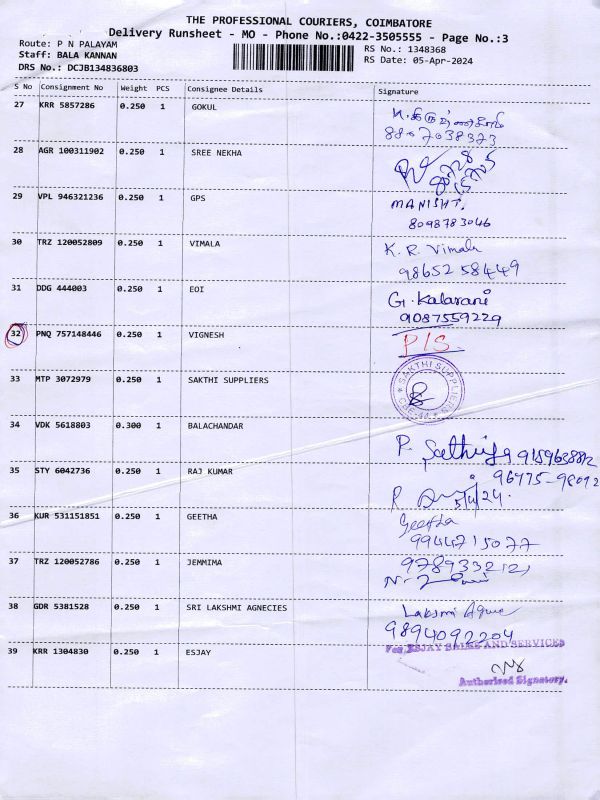 THE PROFESSIONAL COURIERS, COIMBATORE
Delivery Runsheet - MO - Phone No.:0422-3505555 - Page No.:3
Route: P N PALAYAM
RS No.: 1348368
Staff: BALA KANNAN
RS Date: 05-Apr-2024
DRS No.: DCJB134836803
S No Consignment No Weight PCS Consignee Details Signature
27 KRR 5857286 0.250 1 GOKUL
8807038373
28 AGR 100311902 0.250 1 SREE NEKHA
29 VPL 946321236 0.250 1 GPS MANISHT.
8098783046
30 TRZ 120052809 0.250 1 VIMALA K. R. Vimala
9865258449
31 DDG 444003 0.250 1 EOI G. Kalarani
9087559229
32 PNQ 757148446 0.250 1 VIGNESH P/S.
33 MTP 3072979 0.250 1 SAKTHI SUPPLIERS
* SAKTHI SUPPLIERS * CBE-44
34 VDK 5618803 0.300 1 BALACHANDAR
P. Sathiya
35 STY 6042736 0.250 1 RAJ KUMAR
5/4/24.
36 KUR 531151851 0.250 1 GEETHA Geetha
9944715077
37 TRZ 120052786 0.250 1 JEMMIMA 9789332121
38 GDR 5381528 0.250 1 SRI LAKSHMI AGNECIES Laksmi
9894092204
39 KRR 1304830 0.250 1 ESJAY For ESJAY SALES AND SERVICES
Authorised Signatory.